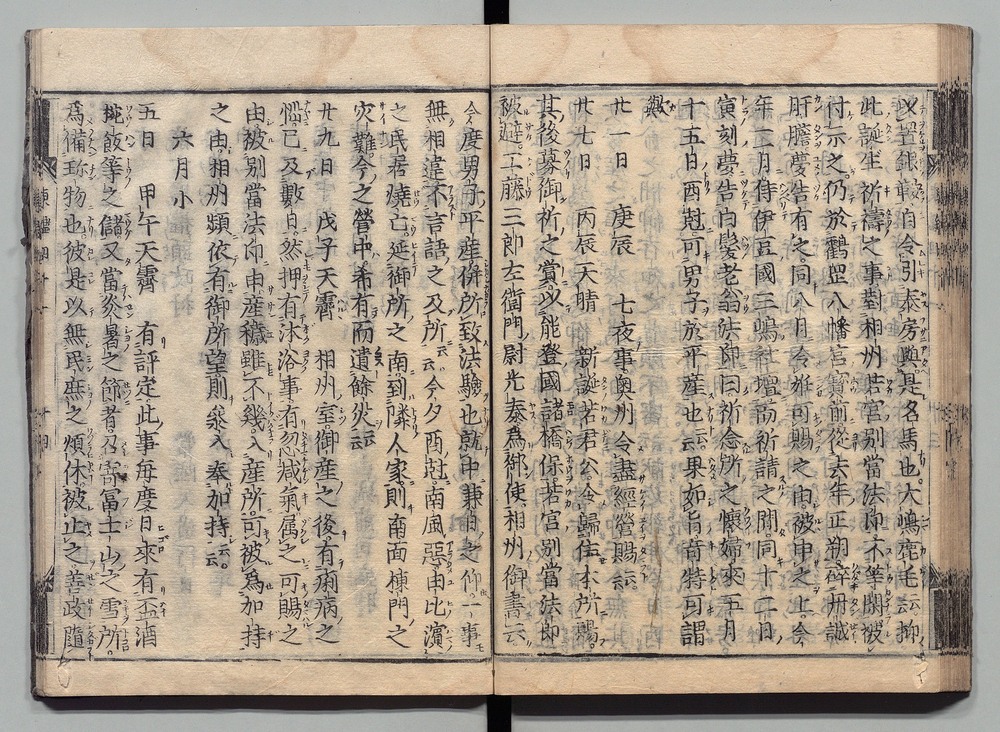 又置銀鞍自令引泰房與是名馬也大嶋鹿毛云抑
此誕生祈禱之事對相州若宮別當法印不等閑被
付示之仍於鶴岡八幡宮寳前從去年正朔碎丹誠
肝膽夢告有之同八月令妊可賜之由被申之上今
年二月侍伊豆國三嶋社壇而祈請之間同十二日
寅刻夢告白髮老翁法印曰祈念所之懷婦來五月
十五日酉尅可男子於平產也云云果如旨奇特可謂
歟
廿一日 庚辰 七夜事奥州令盡經營賜云云
廿七日 丙辰天晴 新誕若君公令歸住本所賜
其後募御祈之賞以能登國諸橋保若宮別當法印
被避工藤三郎左衞門尉光泰爲御使相州御書云
今度男子平產併所致法驗也就中兼日之仰一事
無相違不言語之及所云云今夕酉尅南風惡由比濱
之民居燒亡延御所之南到隣人家則南面棟門之
灾難今之營中希有而遺餘火云云
廿九日 戊子天霽 相州室御產之後有痢病之
惱已及數日然押有沐浴事有忽減氣属之可賜之
由被別當法印申產穢雖不幾入產所可被爲加持
之由相州頻依有御所望則參入奉加持云云
六月小
五日 甲午天霽 有評定此事每度日來有盃酒
椀飯等之儲又當炎暑之節者召寄富士山之雪所
爲備珍物也彼是以無民庶之煩休被止之善政隨